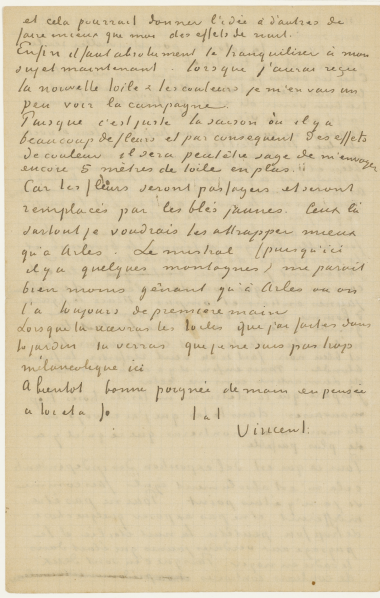 et cela pourrait donner l'idée à d'autres de
faire mieux que moi des effets de nuit.
Enfin il faut absolument te tranquiliser à mon
sujet maintenant. Lorsque j'aurai reçu
la nouvelle toile & les couleurs je m'en vais un
peu voir la campagne.
Puisque c'est juste la saison où il y a
beaucoup de fleurs et par consequent des effets
de couleur il sera peutêtre sage de m'envoyer
encore 5 mètres de toile en plus.
Car les fleurs seront passagères et seront
remplacés par les blés jaunes. Ceux là
surtout je voudrais les attrapper mieux
qu'à Arles. Le mistral (puisqu'ici
il y a quelques montagnes) me parait
bien moins gênant qu'à Arles ou on
l'a toujours de première main
Lorsque tu recevras les toiles que j'ai faites dans
le jardin tu verras que je ne suis pas trop
mélancolique ici
A bientot bonne poignée de main en pensée
à toi et à Jo t. à t.
Vincent.